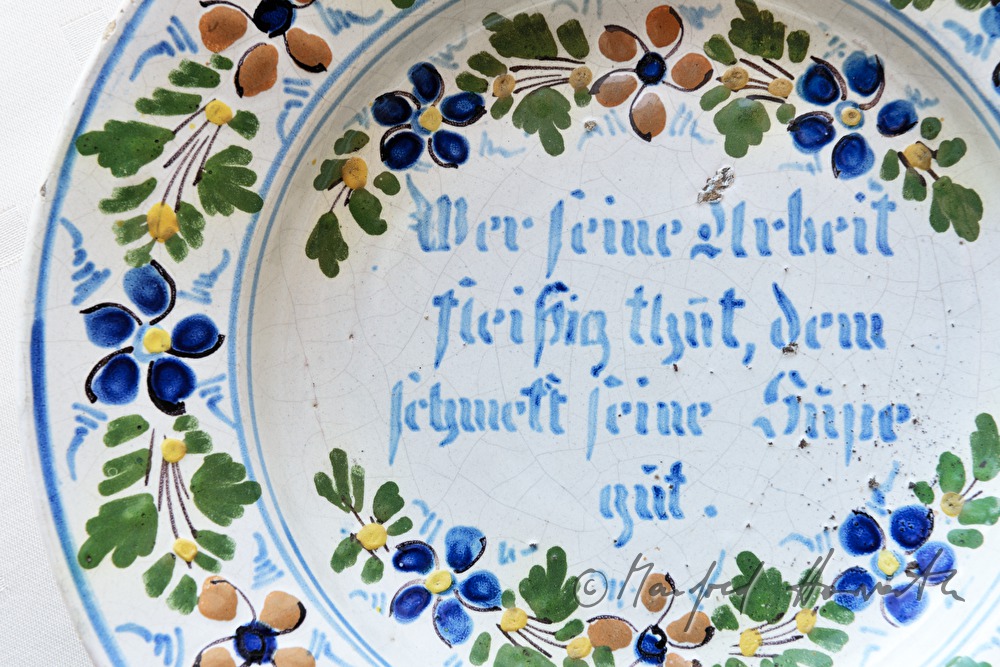 Wer seine Arbeit
fleißig thut, dem
schmekt seine Supe
gut.
© Manfred Horvath